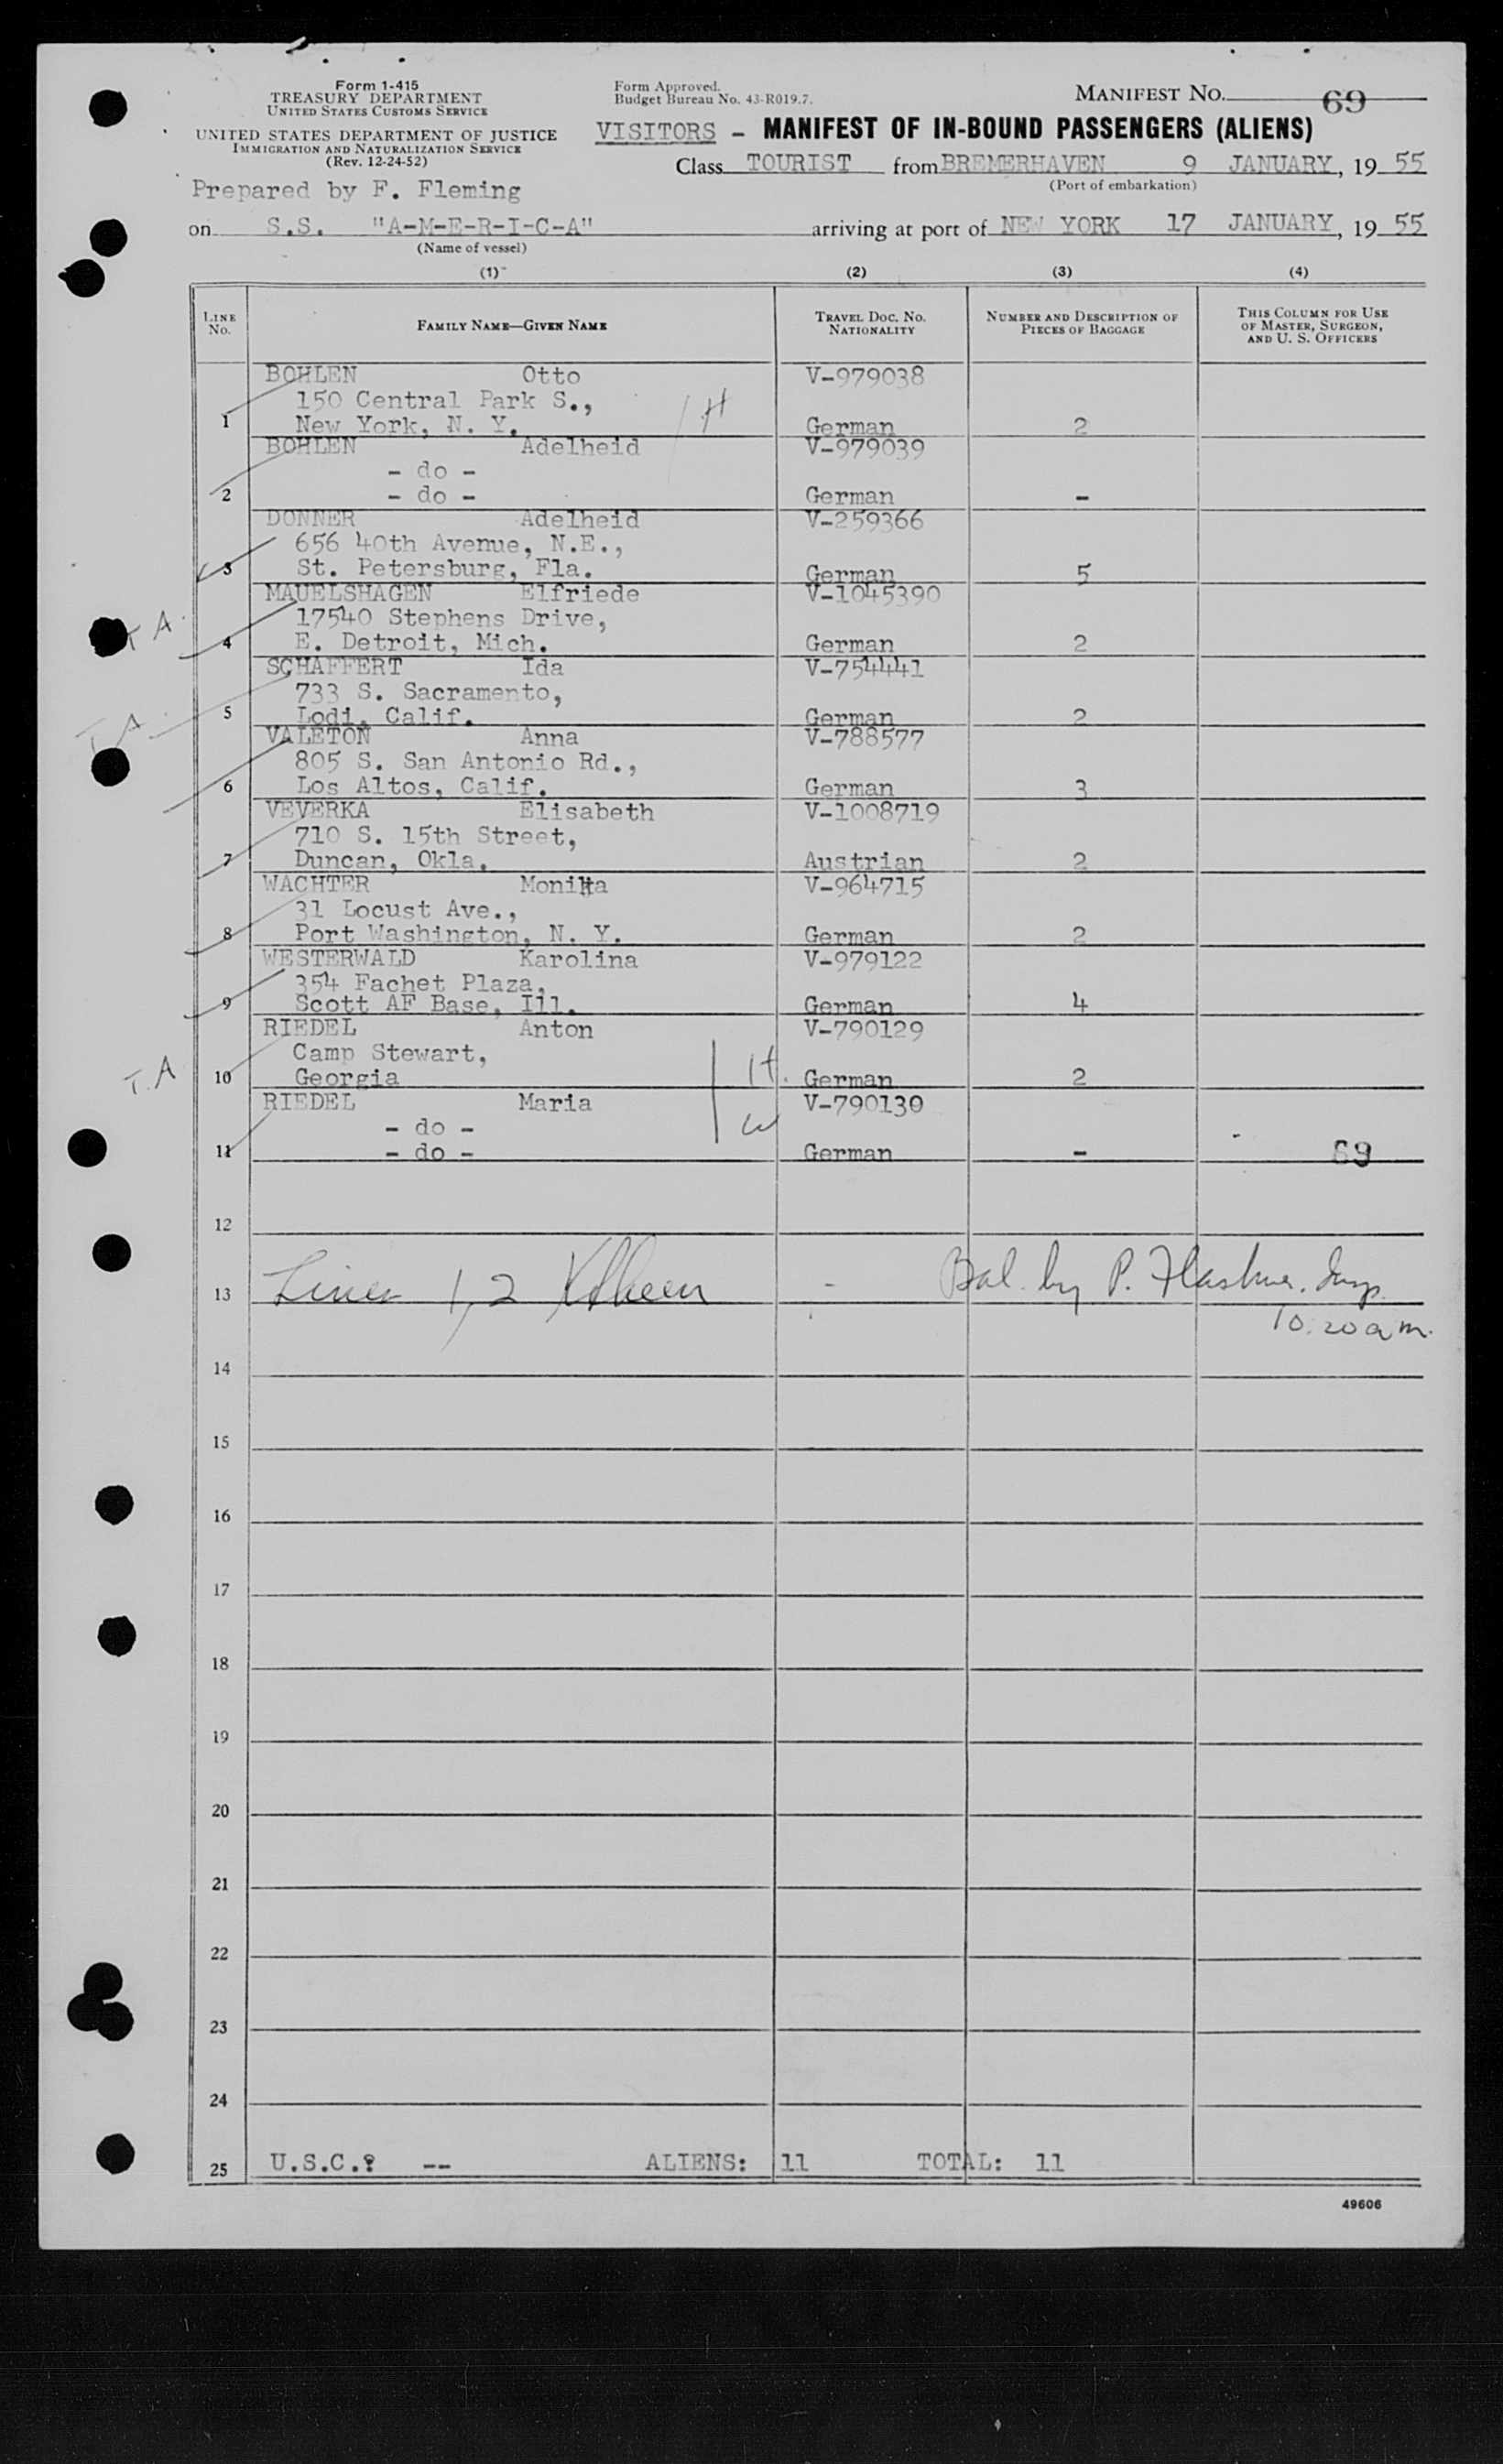 Form 1-415
TREASURY DEPARTMENT
UNITED STATES CUSTOMS SERVICE
UNITED STATES DEPARTMENT OF JUSTICE
IMMIGRATION AND NATURALIZATION SERVICE
(Rev. 12-24-52)
Form Approved.
Budget Bureau No. 43-R019.7.
MANIFEST NO. 69
VISITORS - MANIFEST OF IN-BOUND PASSENGERS (ALIENS)
Class TOURIST from BREMERHAVEN 9 JANUARY, 19 55
(Port of embarkation)
Prepared by F. Fleming
on S.S. "A-M-E-R-I-C-A" arriving at port of NEW YORK 17 JANUARY, 19 55
(Name of vessel)
(1) (2) (3) (4)
LINE NO. FAMILY NAME—GIVEN NAME TRAVEL DOC. NO. NATIONALITY NUMBER AND DESCRIPTION OF PIECES OF BAGGAGE THIS COLUMN FOR USE OF MASTER, SURGEON, AND U. S. OFFICERS
BOHLEN Otto V-979038
150 Central Park S.,
1 New York, N. Y. H German 2
BOHLEN Adelheid V-979039
- do -
2 - do - German -
DONNER Adelheid V-259366
656 40th Avenue, N.E.,
3 St. Petersburg, Fla. German 5
MAUELSHAGEN Elfriede V-1045390
T A. 17540 Stephens Drive,
4 E. Detroit, Mich. German 2
SCHAFFERT Ida V-754441
733 S. Sacramento,
T A. 5 Lodi, Calif. German 2
VALETON Anna V-788577
805 S. San Antonio Rd.,
6 Los Altos, Calif. German 3
VEVERKA Elisabeth V-1008719
710 S. 15th Street,
7 Duncan, Okla. Austrian 2
WACHTER Monika V-964715
31 Locust Ave.,
8 Port Washington, N. Y. German 2
WESTERWALD Karolina V-979122
354 Fachet Plaza,
9 Scott AF Base, Ill. German 4
RIEDEL Anton V-790129
Camp Stewart,
T.A 10 Georgia H. German 2
RIEDEL Maria V-790130
- do - W
11 - do - German - 69
12
13 Lines 1, 2 - Bal. by P. Insp.
10:20 a.m.
14
15
16
17
18
19
20
21
22
23
24
25 U.S.C.: -- ALIENS: 11 TOTAL: 11
49606